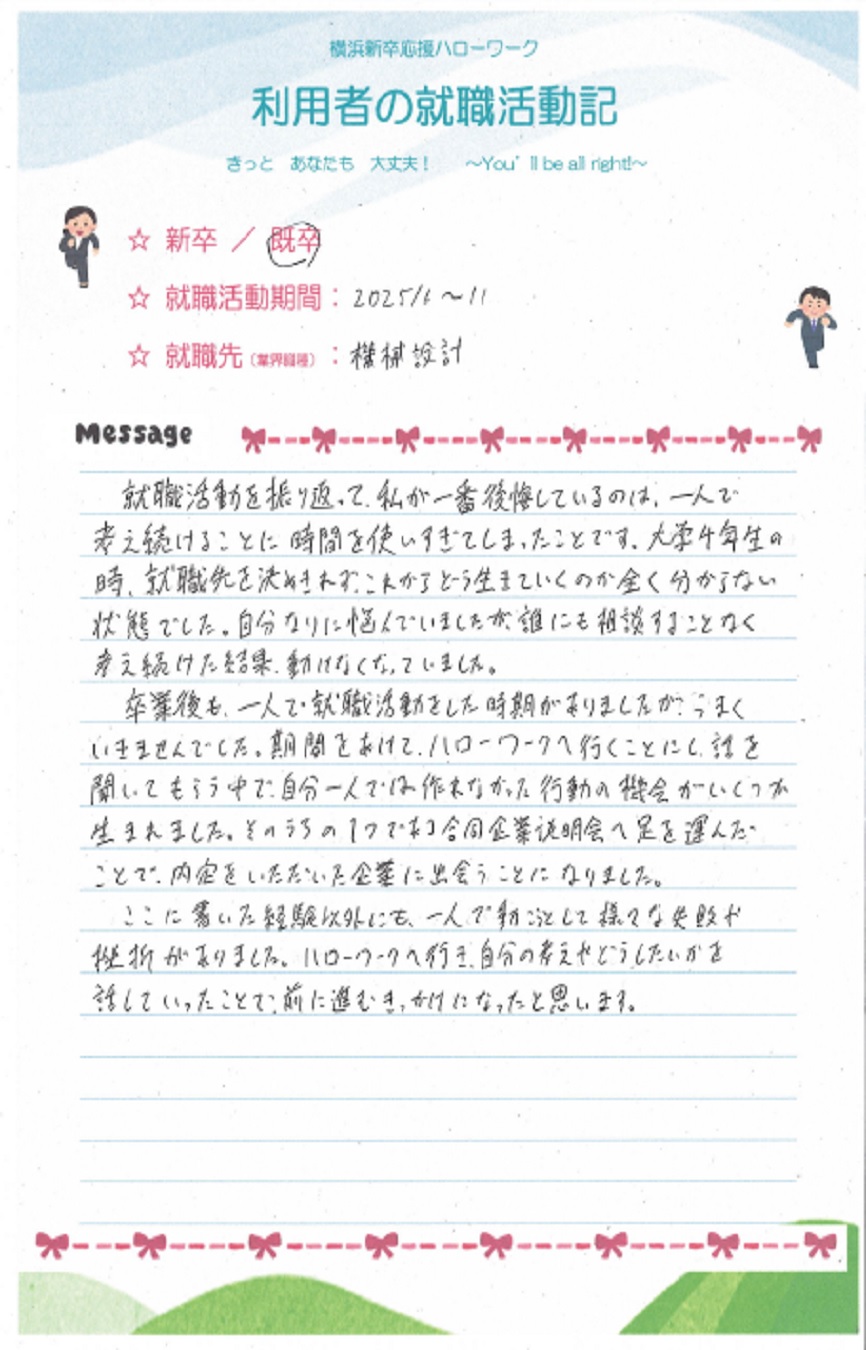 横浜新卒応援ハローワーク
利用者の就職活動記
きっと あなたも 大丈夫！ ～You'll be all right!～
☆ 新卒 ／ 既卒
☆ 就職活動期間： 2025/6 ～11
☆ 就職先（業界職種）： 機械設計
Message
就職活動を振り返って、私が一番後悔しているのは、一人で
考え続けることに時間を使いすぎてしまったことです。大学4年生の
時、就職先を決めきれず、これからどう生きていくのか全く分からない
状態でした。自分なりに悩んでいましたが、誰にも相談することなく
考え続けた結果、動けなくなっていました。
卒業後も、一人で就職活動をした時期がありましたが、うまく
いきませんでした。期間をあけて、ハローワークへ行くことにし、話を
聞いてもらう中で、自分一人では作れなかった行動の機会がいくつか
生まれました。そのうちの1つである合同企業説明会へ足を運んだ
ことで、内定をいただいた企業に出会うことになりました。
ここに書いた経験以外にも、一人で動こうとして様々な失敗や
挫折がありました。ハローワークへ行き、自分の考えやどうしたいかを
話していったことで、前に進むきっかけになったと思います。